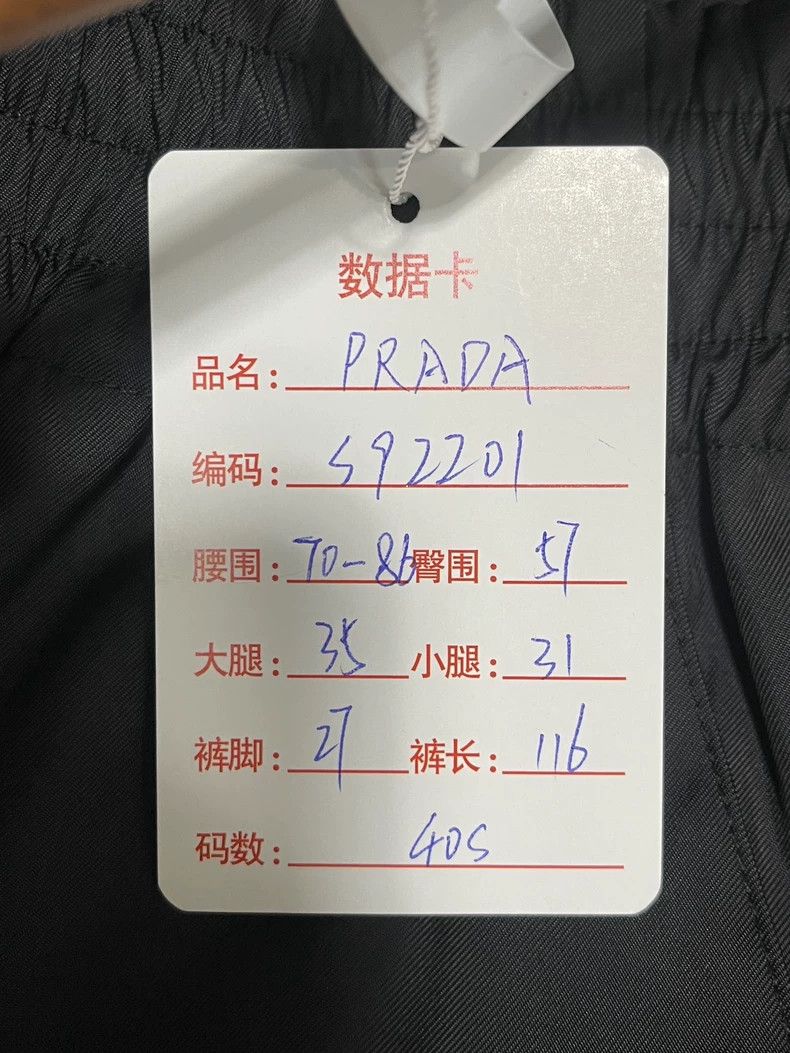 数据卡
品名: PRADA
编码: S92201
腰围: 70-86 臀围: 57
大腿: 35 小腿: 31
裤脚: 27 裤长: 116
码数: 40S